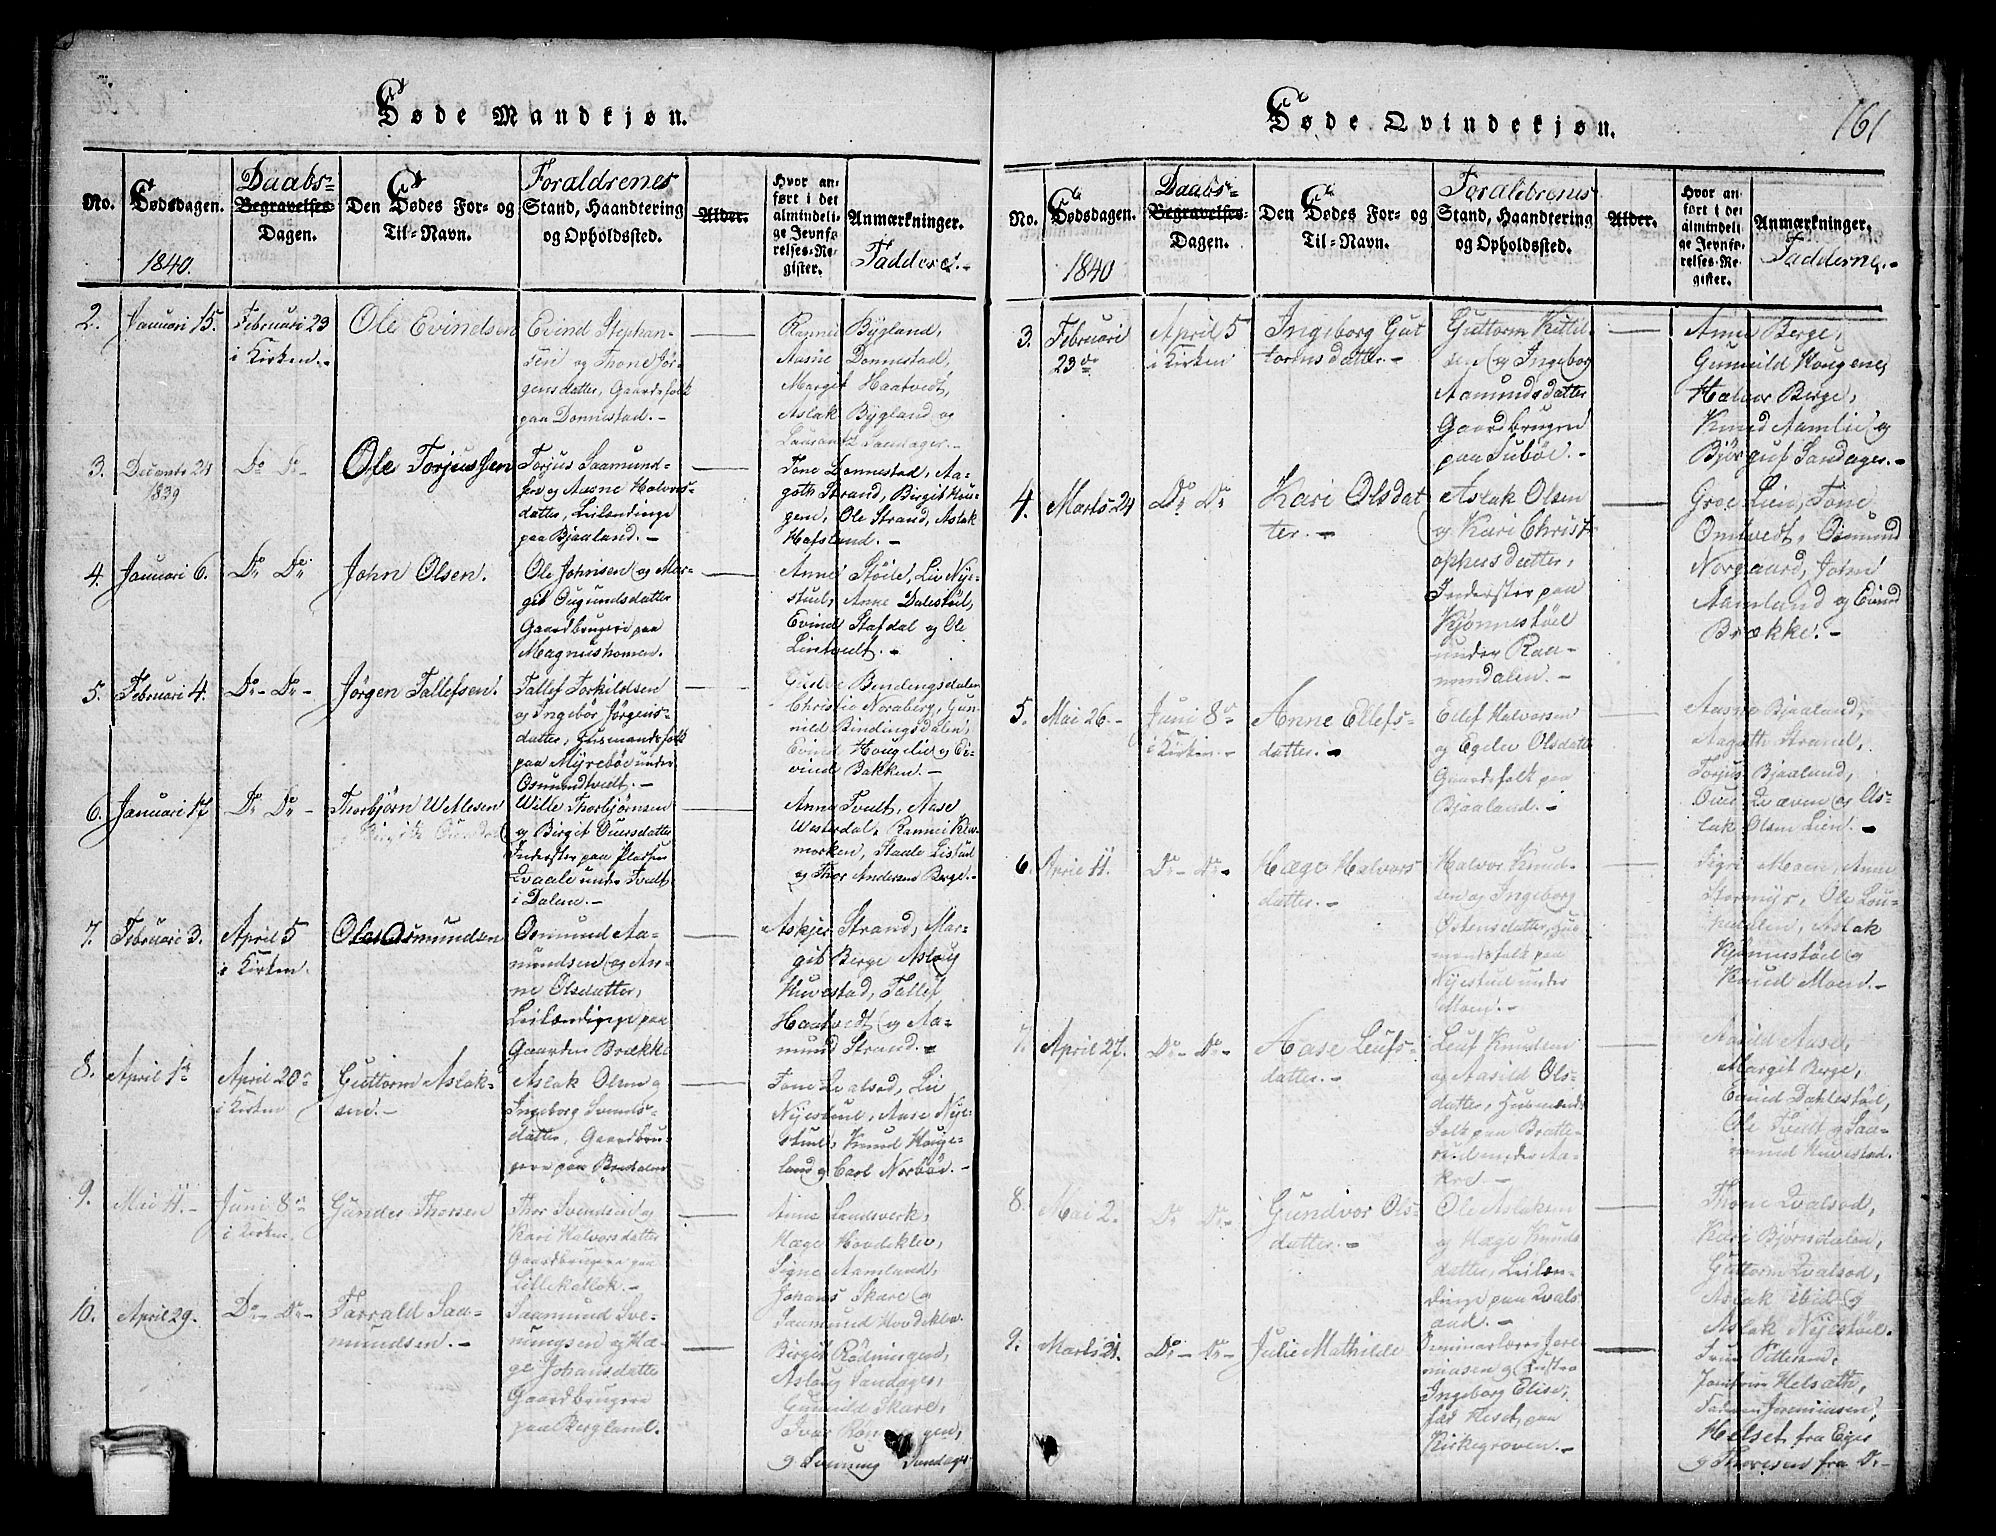 Døde Mandkjøn.
No.
Dødsdagen.
1840.
Daabs-
Begravelses-
Dagen.
Den Dødes For- og
Til-Navn.
Foraldrenes
Stand, Haandtering
og Opholdssted.
Alder.
Hvor an-
ført i det
almindeli-
ge Jevnfø-
relses-Re-
gister.
Anmærkninger.
Faddere.-
2. Januari 15.
Februari 23
i Kirken.-
Ole Evindsen
Evind Stephan-
sen og Thone Jør-
gensdatter, Gaardsfolk
paa Donnestad.-
Rannei Bÿgland,
Aasne Donnestad,
Margit Haatvedt,
Aslak Bÿgland og
Laurantz Sandager.-
3. Decembr 24
1839
Do Do-
Ole Torjussen
Torjus Saamund-
sen og Aasne Halvors-
datter, Leilændinge
paa Bjaaland.-
Tone Donnestad, Aa-
goth Strand, Birgit Hou-
gen, Ole Strand, Aslak
Hafsland.-
4. Januari 6.
Do Do
John Olsen.
Ole Johnsen og Mar-
git Ougundsdatter
Gaardbrugere paa
Magnushomen.
Anne Støile, Liv Nÿe-
stuel, Anne Dalestöil,
Evind Stafdal og Ole
Lintvedt.-
5. Februari 4.
Do- Do-
Jørgen Tallefsen.
Tallef Torkildsen
og Ingebor Jørgens-
datter, Husmandsfolk
paa Mÿrebøe under
Osmundtvedt.-
Bindingsdalen
Christie Noraberg, Gun-
nild Bindingsdalen,
Evind Hougelie og Ei-
vind Bakken.-
6. Januari 17
Do Do-
Thorbjörn Wetlesen
Wille Thorbjörnsen
og Birgit Ouersdatter
Inderster paa Pladsen
Qvaale under Tvedt
i Dalen.-
Anne Tvedt, Aase
Westerdal, Rannei Kle-
morken, Staale Listuel
og Thor Andersen Berge.-
7. Februari 3.
April 5
i Kirken.
Ole Osmundsen
Osmund Aa-
mundsen og An-
ne Olsdatter,
Leilændinge paa
Gaarden Brække
Askjer Strand, Mar-
git Berge, Aslaug
Huvestad, Tallef
Haatvedt og Aa-
mund Strand.-
8. April 1ste
April 20de
i Kirken
Guttorm Aslak-
sen.-
Aslak Olsen og
Ingeborg Svends-
datter, Gaardbru-
gere paa Bredalen
Tone Qvalsod, Liv
Nÿestuel, Aase Nÿe-
stuel, Knud Houge-
land og Carl Norbøe.-
9. Mai 11.-
Juni 8de
i Kirken.
Gunder Thorsen
Thor Svendsen og
Kari Halvorsdatter
Gaardbrugere paa
Lillekallok.-
Anne Landsverk,
Hæge Hovdeklev,
Signe Aamland,
Johans Skare og
Saamund Hovdeklev.
10. April 29.
Do- Do-
Tarrald Saa-
mundsen.-
Saamund Sve-
nungsen og Hæ-
ge Johansdatter
Gaardbrugere
paa Bergland.
Birgit Rödningen,
Aslaug Sandager,
Gunuld Skare,
Ivar Rön gen,
og Svenung Sandager
Døde Qvindekjøn.
161
No.
Dødsdagen.
1840
Daabs-
Begravelses-
Dagen.
Den Dødes For- og
Til-Navn.
Foraldrenes
Stand, Haandtering
og Opholdssted.
Alder.
Hvor an-
ført i det
almindeli-
ge Jevnfø-
relses-Re-
gister.
Anmærkninger.
Fadderne.-
3. Februari
23de
April 5
i Kirken
Ingeborg Gut
tormsdatter.-
Guttorm Kittil-
sen og Ingeborg
Aamundsdatter
Gaardbrugere
paa Suböe.-
Anne Berge,
Gunuild Hougene,
Halvor Berge,
Knud Aamlie og
Bjørguf Sandager.-
4. Marts 24
Do Do
Kari Olsdat
ter.-
Aslak Olsen
og Kari Christ
ophersdatter,
Inderster paa
Kjönnestöel
under Raa-
mundalen.-
Groe Lien, Tone
Omtvedt, Osmund
Norgaard, John
Aamland og Evind
Brække.-
5. Mai 26.-
Juni 8de
i Kirken.-
Anne Ellefs-
datter.-
Ellef Halvorsen
og Egelev Olsdatter
Gaardsfolk paa
Bjaaland.-
Aasne Bjaaland,
Aagoth Strand,
Torjus Bjaaland,
Ouer Qvæven og As-
lak Olsen Lien.-
6. April 11.
Do- Do-
Hæge Halvors
datter.-
Halvor Knud-
sen og Ingeborg
Østensdatter, Hus-
mandsfolk paa
Nÿestuel under
Moen.-
Sigri Moen, Anne
Stormÿr, Ole Lou-
pedalen, Aslak
Kjönnestöel og
Knud Moen.-
7. April 27.
Do- Do-
Aase Leufs-
datter.-
Leuf Knudsen
og Aasild Ols-
datter, Husmands
folk paa Bratte-
rud under Aa-
kre.-
Aasild Aase,
Margit Berge,
Evind Dahlestöel,
Ole Tvedt og Saa-
mund Huvestad.
8. Mai 2.
Do Do-
Gundvor Ols-
datter.-
Ole Aslaksen
og Hæge Knuds
datter, Leilæn-
dinge paa Qvals
aand.-
Thone Qvalsod,
Kari Bjørnsdalen,
Guttorm Qvalsod,
Aslak ibid og
Aslak Nÿestöel.
9. Marts 21.
Do- Do-
Julie Mathilde
Seminarlærer Jere
miasen og Hustru
Ingeborg Elise,
fød Heset, paa
Kirkegroven.-
Frue Pettersen,
Jomfrue Helsæth,
Jeremiasen,
Helset fra Eger
og Thoresen fra Do-